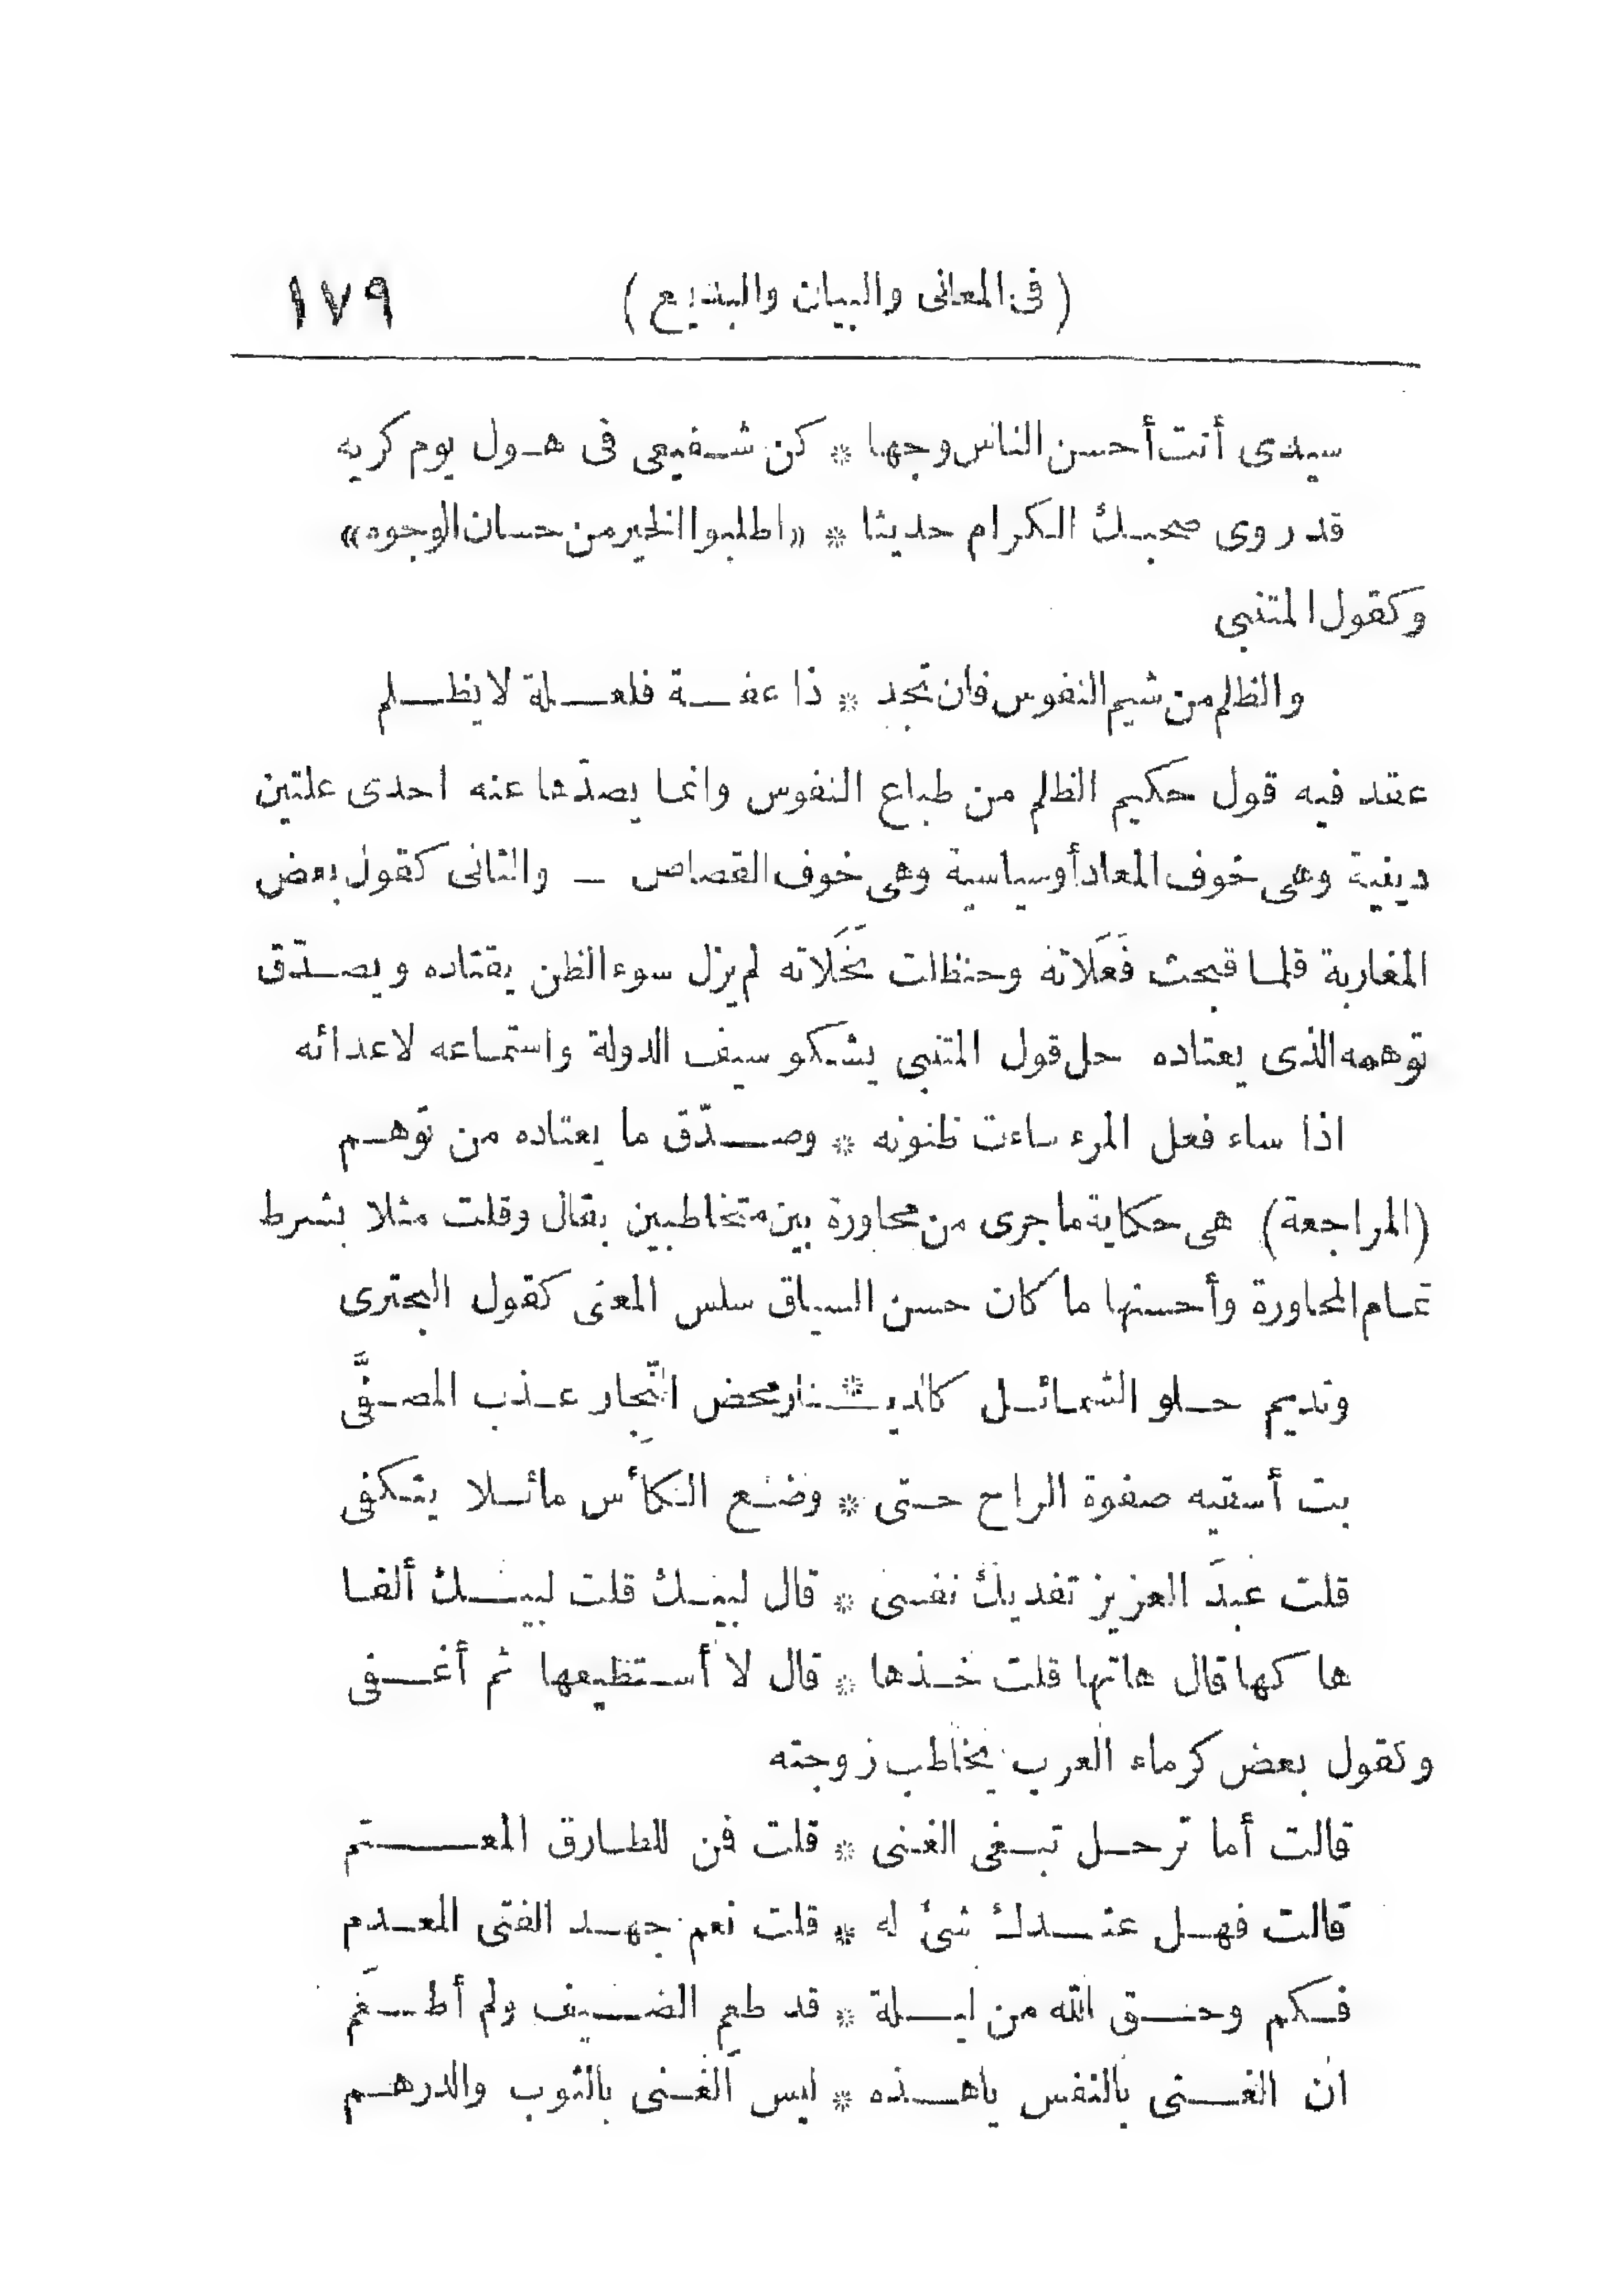 (فى المعانى والبيان والبديع) ١٧٩
سيدى أنت أحسن الناس وجها * كن شفيعى فى هول يوم كريه
قد روى صحبك الكرام حديثا * «اطلبوا الخير من حسان الوجوه»
وكقول المتنبى
والظلم من شيم النفوس فان تجد * ذا عفة فلعلة لا يظلم
عقد فيه قول حكيم الظلم من طباع النفوس وانما يصدّها عنه احدى علتين
دينية وهى خوف المعاد أو سياسية وهى خوف القصاص — والثانى كقول بعض
المغاربة فلما قبحت فَعَلاته وحنظلت نَخَلاته لم يزل سوء الظن يقتاده ويصدّق
توهمه الذى يعتاده حل قول المتنبى يشكو سيف الدولة واستماعه لاعدائه
اذا ساء فعل المرء ساءت ظنونه * وصدّق ما يعتاده من توهم
(المراجعة) هى حكاية ما جرى من محاورة بين متخاطبين بقال وقلت مثلا بشرط
تمام المحاورة وأحسنها ما كان حسن السياق سلس المعنى كقول البحترى
ونديم حلو الشمائل كالديـ * ـنار محض النِّجار عذب المصفَّى
بت أسقيه صفوة الراح حتى * وضع الكأس مائلا يتكفى
قلت عبدَ العزيز تفديك نفسى * قال لبيك قلت لبيك ألفا
هاكها قال هاتها قلت خذها * قال لا أستطيعها ثم أغفى
وكقول بعض كرماء العرب يخاطب زوجته
قالت أما ترحل تبغى الغنى * قلت فمن للطارق المعتم
قالت فهل عندك شئ له * قلت نعم جهد الفتى المعدم
فكم وحق الله من ليلة * قد طعم الضيف ولم أطعَم
ان الغنى بالنفس ياهذه * ليس الغنى بالثوب والدرهم